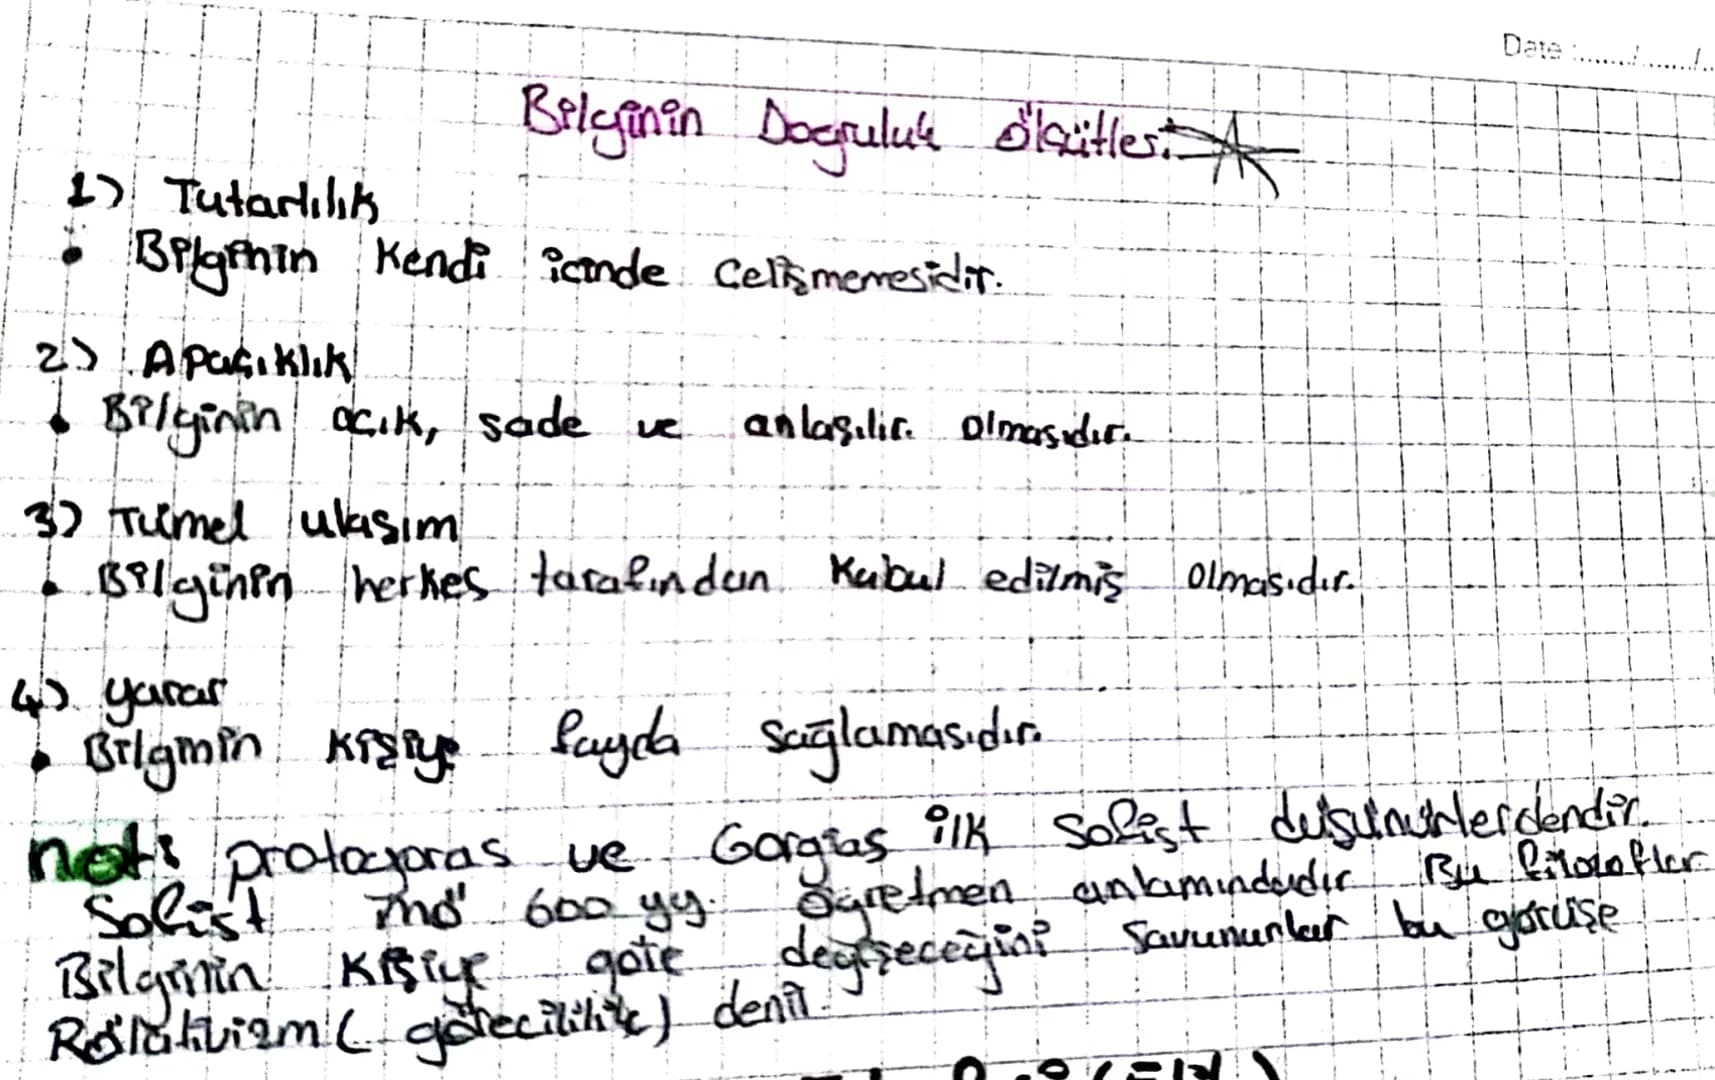 Date :....../....../...
Bilginin Doğruluk Ölçütleri
1) Tutarlılık
• Bilginin Kendi içinde Çelişmemesidir.
2) Apaçıklık
• Bilginin açık, sade ve anlaşılır olmasıdır.
3) Tümel ulaşım
• Bilginin herkes tarafından Kabul edilmiş olmasıdır.
4) yarar
• Bilginin Kişiye fayda sağlamasıdır.
not: protagoras ve Gorgias ilk Sofist düşünürlerdendir.
Sofist mö 600 yy. Öğretmen anlamındadır Bu filozoflar
Bilginin Kişiye göre değişeceğini Savunurlar bu görüşe
Rölativizm ( görecililik) denir.